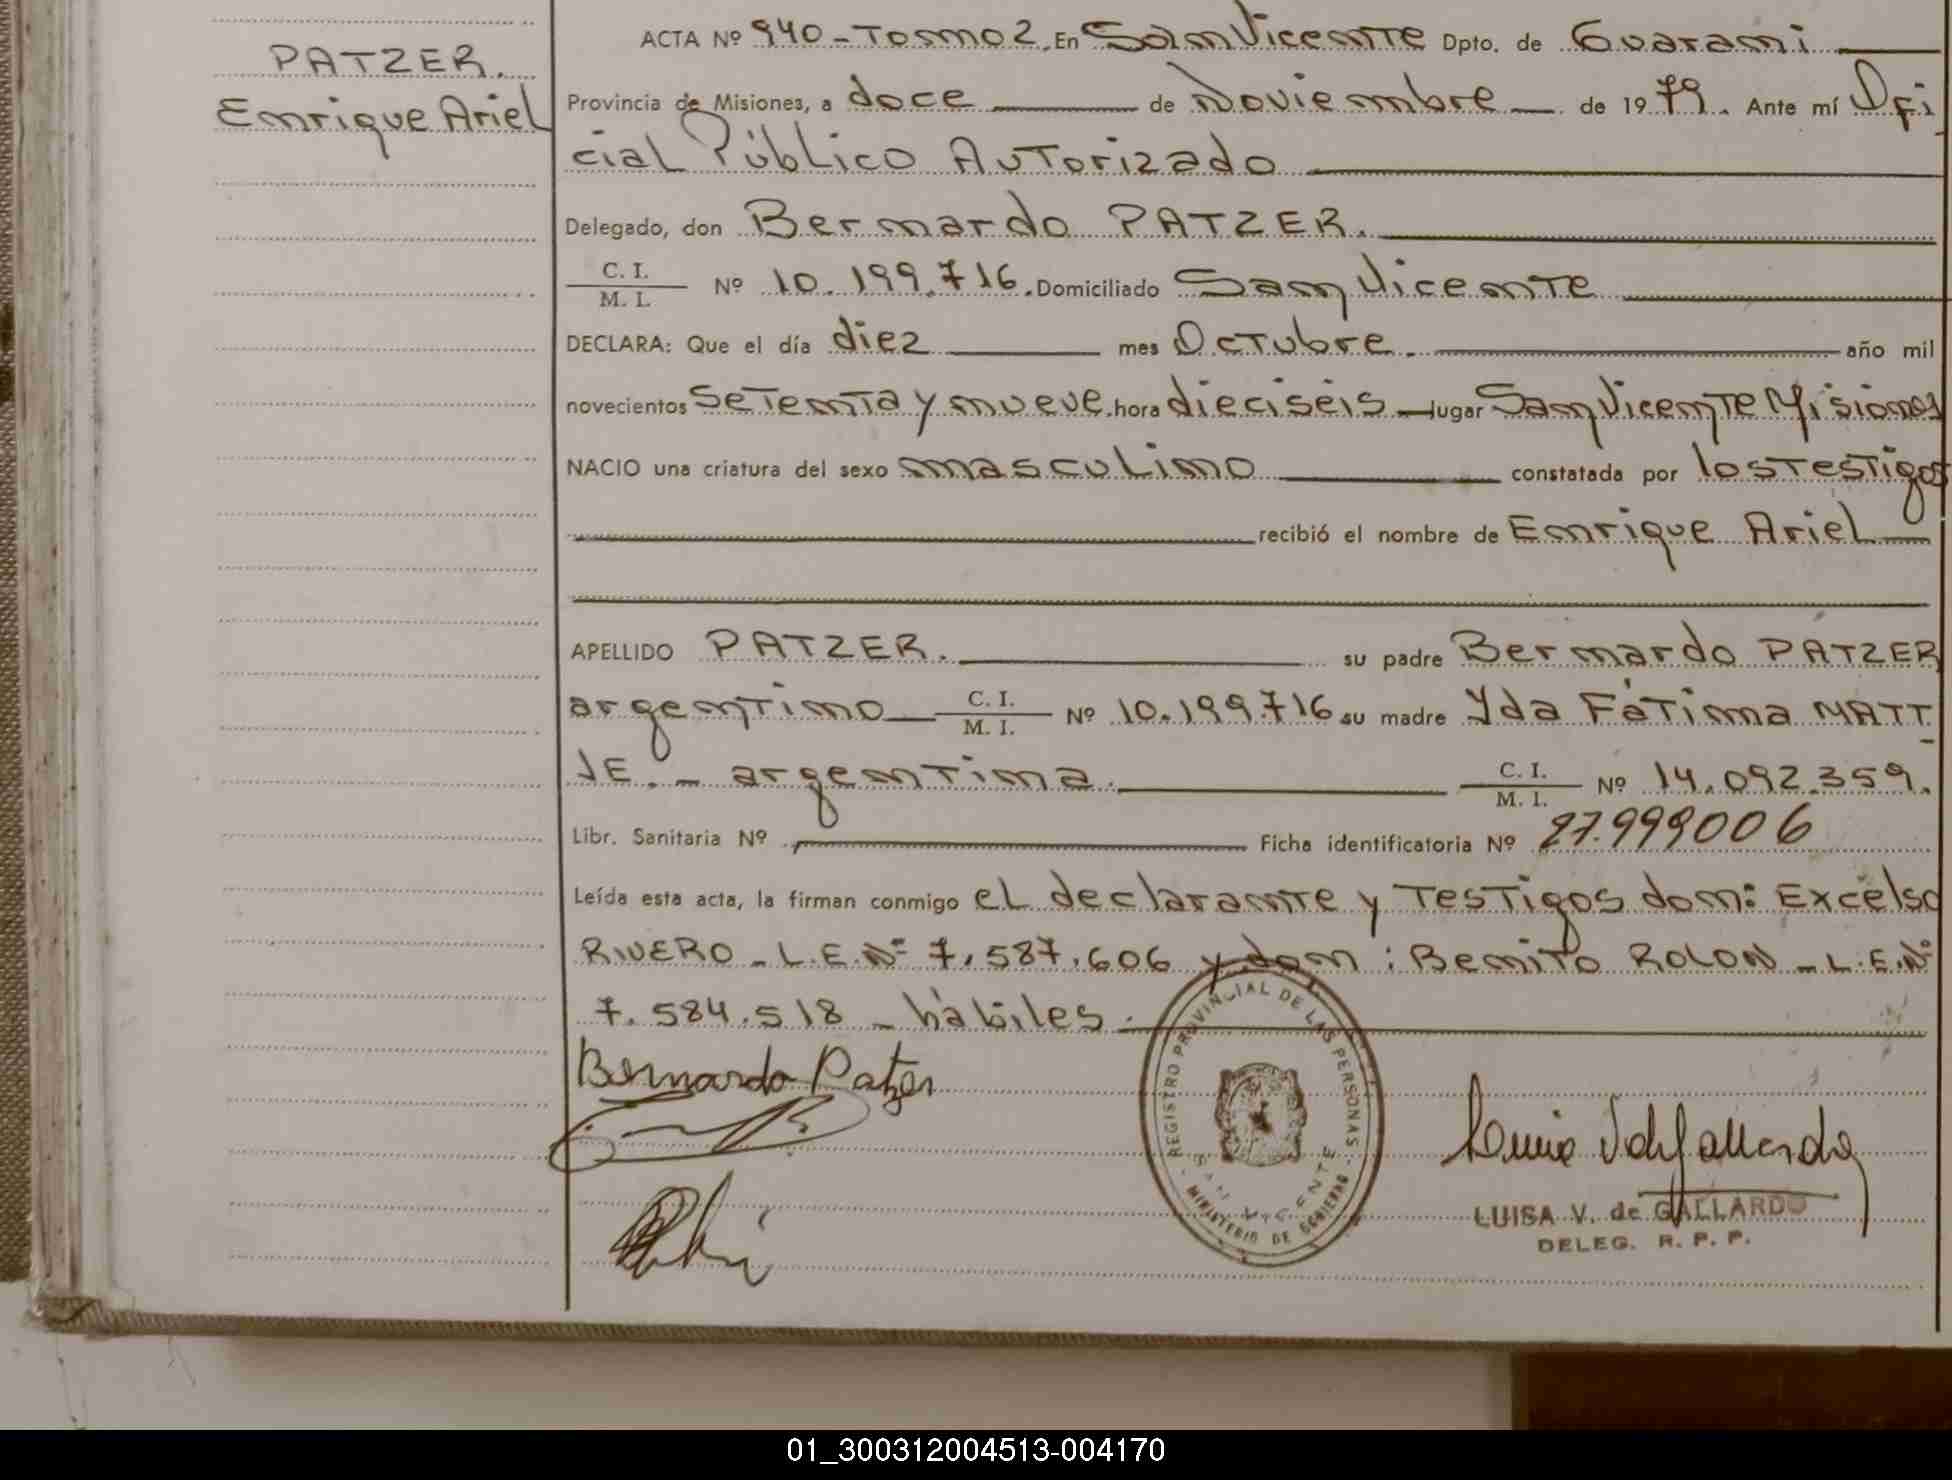 PATZER.
Enrique Ariel
ACTA Nº 940 - Tomo 2. En San Vicente Dpto. de Guarani
Provincia de Misiones, a doce de Noviembre de 1979. Ante mí Ofi
cial Público Autorizado
Delegado, don Bernardo PATZER.
C. I.
M. I. Nº 10.199.716. Domiciliado San Vicente
DECLARA: Que el día diez mes Octubre. año mil
novecientos setenta y nueve. hora dieciseis lugar San Vicente Misiones
NACIO una criatura del sexo masculino constatada por los testigos
recibió el nombre de Enrique Ariel
APELLIDO PATZER. su padre Bernardo PATZER
argentino C. I. M. I. Nº 10.199.716 su madre Yda Fátima MATT
JE. - argentina. C. I. M. I. Nº 14.092.359.
Libr. Sanitaria Nº Ficha identificatoria Nº 27.999006
Leída esta acta, la firman conmigo el declarante y testigos don: Excelso
RIVERO - L.E.Nº 7.587.606 y don: Benito ROLON - L.E.Nº
7.584.518 - hábiles.
Bernardo Patzer
REGISTRO PROVINCIAL DE LAS PERSONAS
SAN VICENTE
MINISTERIO DE GOBIERNO
LUISA V. de GALLARDO
DELEG. R. P. P.
01_300312004513-004170